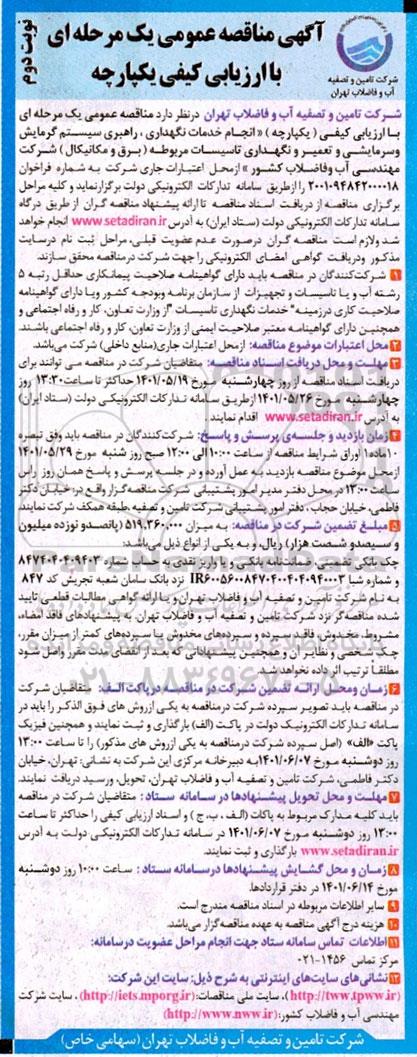 نوبت دوم
آگهی مناقصه عمومی یک مرحله ای
با ارزیابی کیفی یکپارچه
شرکت تامین و تصفیه
آب و فاضلاب تهران
شرکت تامین و تصفیه آب و فاضلاب تهران درنظر دارد مناقصه عمومی یک مرحله ای
با ارزیابی کیفی ( یکپارچه ) « انجام خدمات نگهداری ، راهبری سیستم گرمایش
وسرمایشی و تعمیر و نگهداری تاسیسات مربوطه ( برق و مکانیکال ) شرکت
مهندسی آب وفاضلاب کشور » ازمحل اعتبارات جاری شرکت به شماره فراخوان
۲۰۰۱۰۹۴۸۴۲۰۰۰۰۱۸ را ازطریق سامانه تدارکات الکترونیکی دولت برگزارنماید و کلیه مراحل
برگزاری مناقصه از دریافت اسناد مناقصه تا ارائه پیشنهاد مناقصه گران از طریق درگاه
سامانه تدارکات الکترونیکی دولت (ستاد ایران) به آدرس www.setadiran.ir انجام خواهد
شد ولازم است مناقصه گران درصورت عدم عضویت قبلی، مراحل ثبت نام درسایت
مذکور ودریافت گواهی امضای الکترونیکی را جهت شرکت درمناقصه محقق سازند.
۱ شرکت‌کنندگان در مناقصه باید دارای گواهینامه صلاحیت پیمانکاری حداقل رتبه ۵
رشته آب و یا تاسیسات و تجهیزات از سازمان برنامه وبودجه کشور ویا دارای گواهینامه
صلاحیت کاری درزمینه" خدمات نگهداری تاسیسات "از وزارت تعاون، کار و رفاه اجتماعی و
همچنین دارای گواهینامه معتبر صلاحیت ایمنی از وزارت تعاون، کار و رفاه اجتماعی باشند.
۲ محل اعتبارات موضوع مناقصه: ازمحل اعتبارات جاری(منابع داخلی) شرکت می‌باشد.
۳ مهلت و محل دریافت اسناد مناقصه: متقاضیان شرکت در مناقصه می توانند برای
دریافت اسناد مناقصه از روز چهارشنبه مورخ ۱۴۰۱/۰۵/۱۹ حداکثر تا ساعت۱۳:۳۰ روز
چهارشنبه مورخ ۱۴۰۱/۰۵/۲۶ ازطریق سامانه تدارکات الکترونیکی دولت (ستاد ایران)
به آدرس www.setadiran.ir اقدام نمایند.
۴ زمان بازدید و جلسه‌ی پرسش و پاسخ: شرکت‌کنندگان در مناقصه باید وفق تبصره
۱۰ماده۱ اوراق شرایط مناقصه از ساعت ۱۰:۰۰ الی ۱۲:۰۰ صبح روز شنبه مورخ ۱۴۰۱/۰۵/۲۹
ازمحل موضوع مناقصه بازدید به عمل آورده و در جلسه پرسش و پاسخ همان روز راس
ساعت ۱۳:۰۰ در محل دفتر مدیر امور پشتیبانی شرکت مناقصه‌گزار واقع در: خیابان دکتر
فاطمی، خیابان حجاب ، دفتر امور پشتیبانی شرکت تامین و تصفیه ،طبقه همکف شرکت نمایند.
۵ مبلغ تضمین شرکت در مناقصه: به میزان ۵۱۹.۳۶۰.۰۰۰ (پانصدو نوزده میلیون
و سیصدو شصت هزار) ریال، و به یکی از انواع ذیل می‌باشد:
چک بانکی تضمینی، ضمانت‌نامه بانکی و یا واریز نقدی به حساب شماره ۸۴۷۴۰۴۰۴۰۹۴۰۳
و شماره شبا IR۶۰۰۵۶۰۰۸۴۷۰۴۰۰۴۰۴۰۹۴۰۰۰۳ نزد بانک سامان شعبه تجریش کد ۸۴۷
به نام شرکت تامین و تصفیه آب و فاضلاب تهران و یا ارائه گواهی مطالبات قطعی تایید
شده مناقصه‌گر نزد شرکت تامین و تصفیه آب و فاضلاب تهران به پیشنهادهای فاقد امضاء،
مشروط، مخدوش، فاقد سپرده و سپرده‌های مخدوش یا سپرده‌های کمتر از میزان مقرر،
چک شخصی و نظایر آن و همچنین پیشنهاداتی که بعد از انقضای مدت مقرر واصل شود
مطلقا ترتیب اثر داده نخواهد شد.
۶ زمان ومحل ارائه تضمین شرکت در مناقصه درپاکت الف: متقاضیان شرکت
در مناقصه باید تصویر سپرده شرکت درمناقصه به یکی ازروش های فوق الذکر را باید در
سامانه تدارکات الکترونیک دولت در پاکت (الف) بارگذاری و ثبت نمایند و همچنین فیزیک
پاکت «الف» (اصل سپرده شرکت درمناقصه به یکی ازروش های مذکور) را تا ساعت ۱۳:۰۰
روز دوشنبه مورخ ۱۴۰۱/۰۶/۰۷به دبیرخانه مرکزی این شرکت به نشانی: تهران، خیابان
دکتر فاطمی، شرکت تامین و تصفیه آب و فاضلاب تهران، تحویل، ورسید دریافت نمایند.
۷ مهلت و محل تحویل پیشنهادها در سامانه ستاد : متقاضیان شرکت در مناقصه
باید کلیه مدارک مربوط به پاکات (الف ، ب، ج ) و اسناد ارزیابی کیفی را حداکثر تا ساعت
۱۳:۰۰ روز دوشنبه مورخ ۱۴۰۱/۰۶/۰۷ در سامانه تدارکات الکترونیکی دولت به آدرس
www.setadiran.ir بارگذاری و ثبت نمایند.
۸ زمان و محل گشایش پیشنهادها درسامانه ستاد : ساعت ۱۰:۰۰ روز دوشنبه
مورخ ۱۴۰۱/۰۶/۱۴ در دفتر قراردادها.
۹ سایر اطلاعات مربوطه در اسناد مناقصه مندرج است.
۱۰ هزینه درج آگهی مناقصه به عهده مناقصه‌گزار می‌باشد.
۱۱ اطلاعات تماس سامانه ستاد جهت انجام مراحل عضویت درسامانه:
مرکز تماس ۱۴۵۶-۰۲۱
۱۲ نشانی‌های سایت‌های اینترنتی به شرح ذیل: سایت این شرکت:
(http://tww.tpww.ir)، سایت ملی مناقصات: (http://iets.mporg.ir) ، سایت شرکت
مهندسی آب و فاضلاب کشور: (http://www.nww.ir)
شرکت تامین و تصفیه آب و فاضلاب تهران (سهامی خاص)